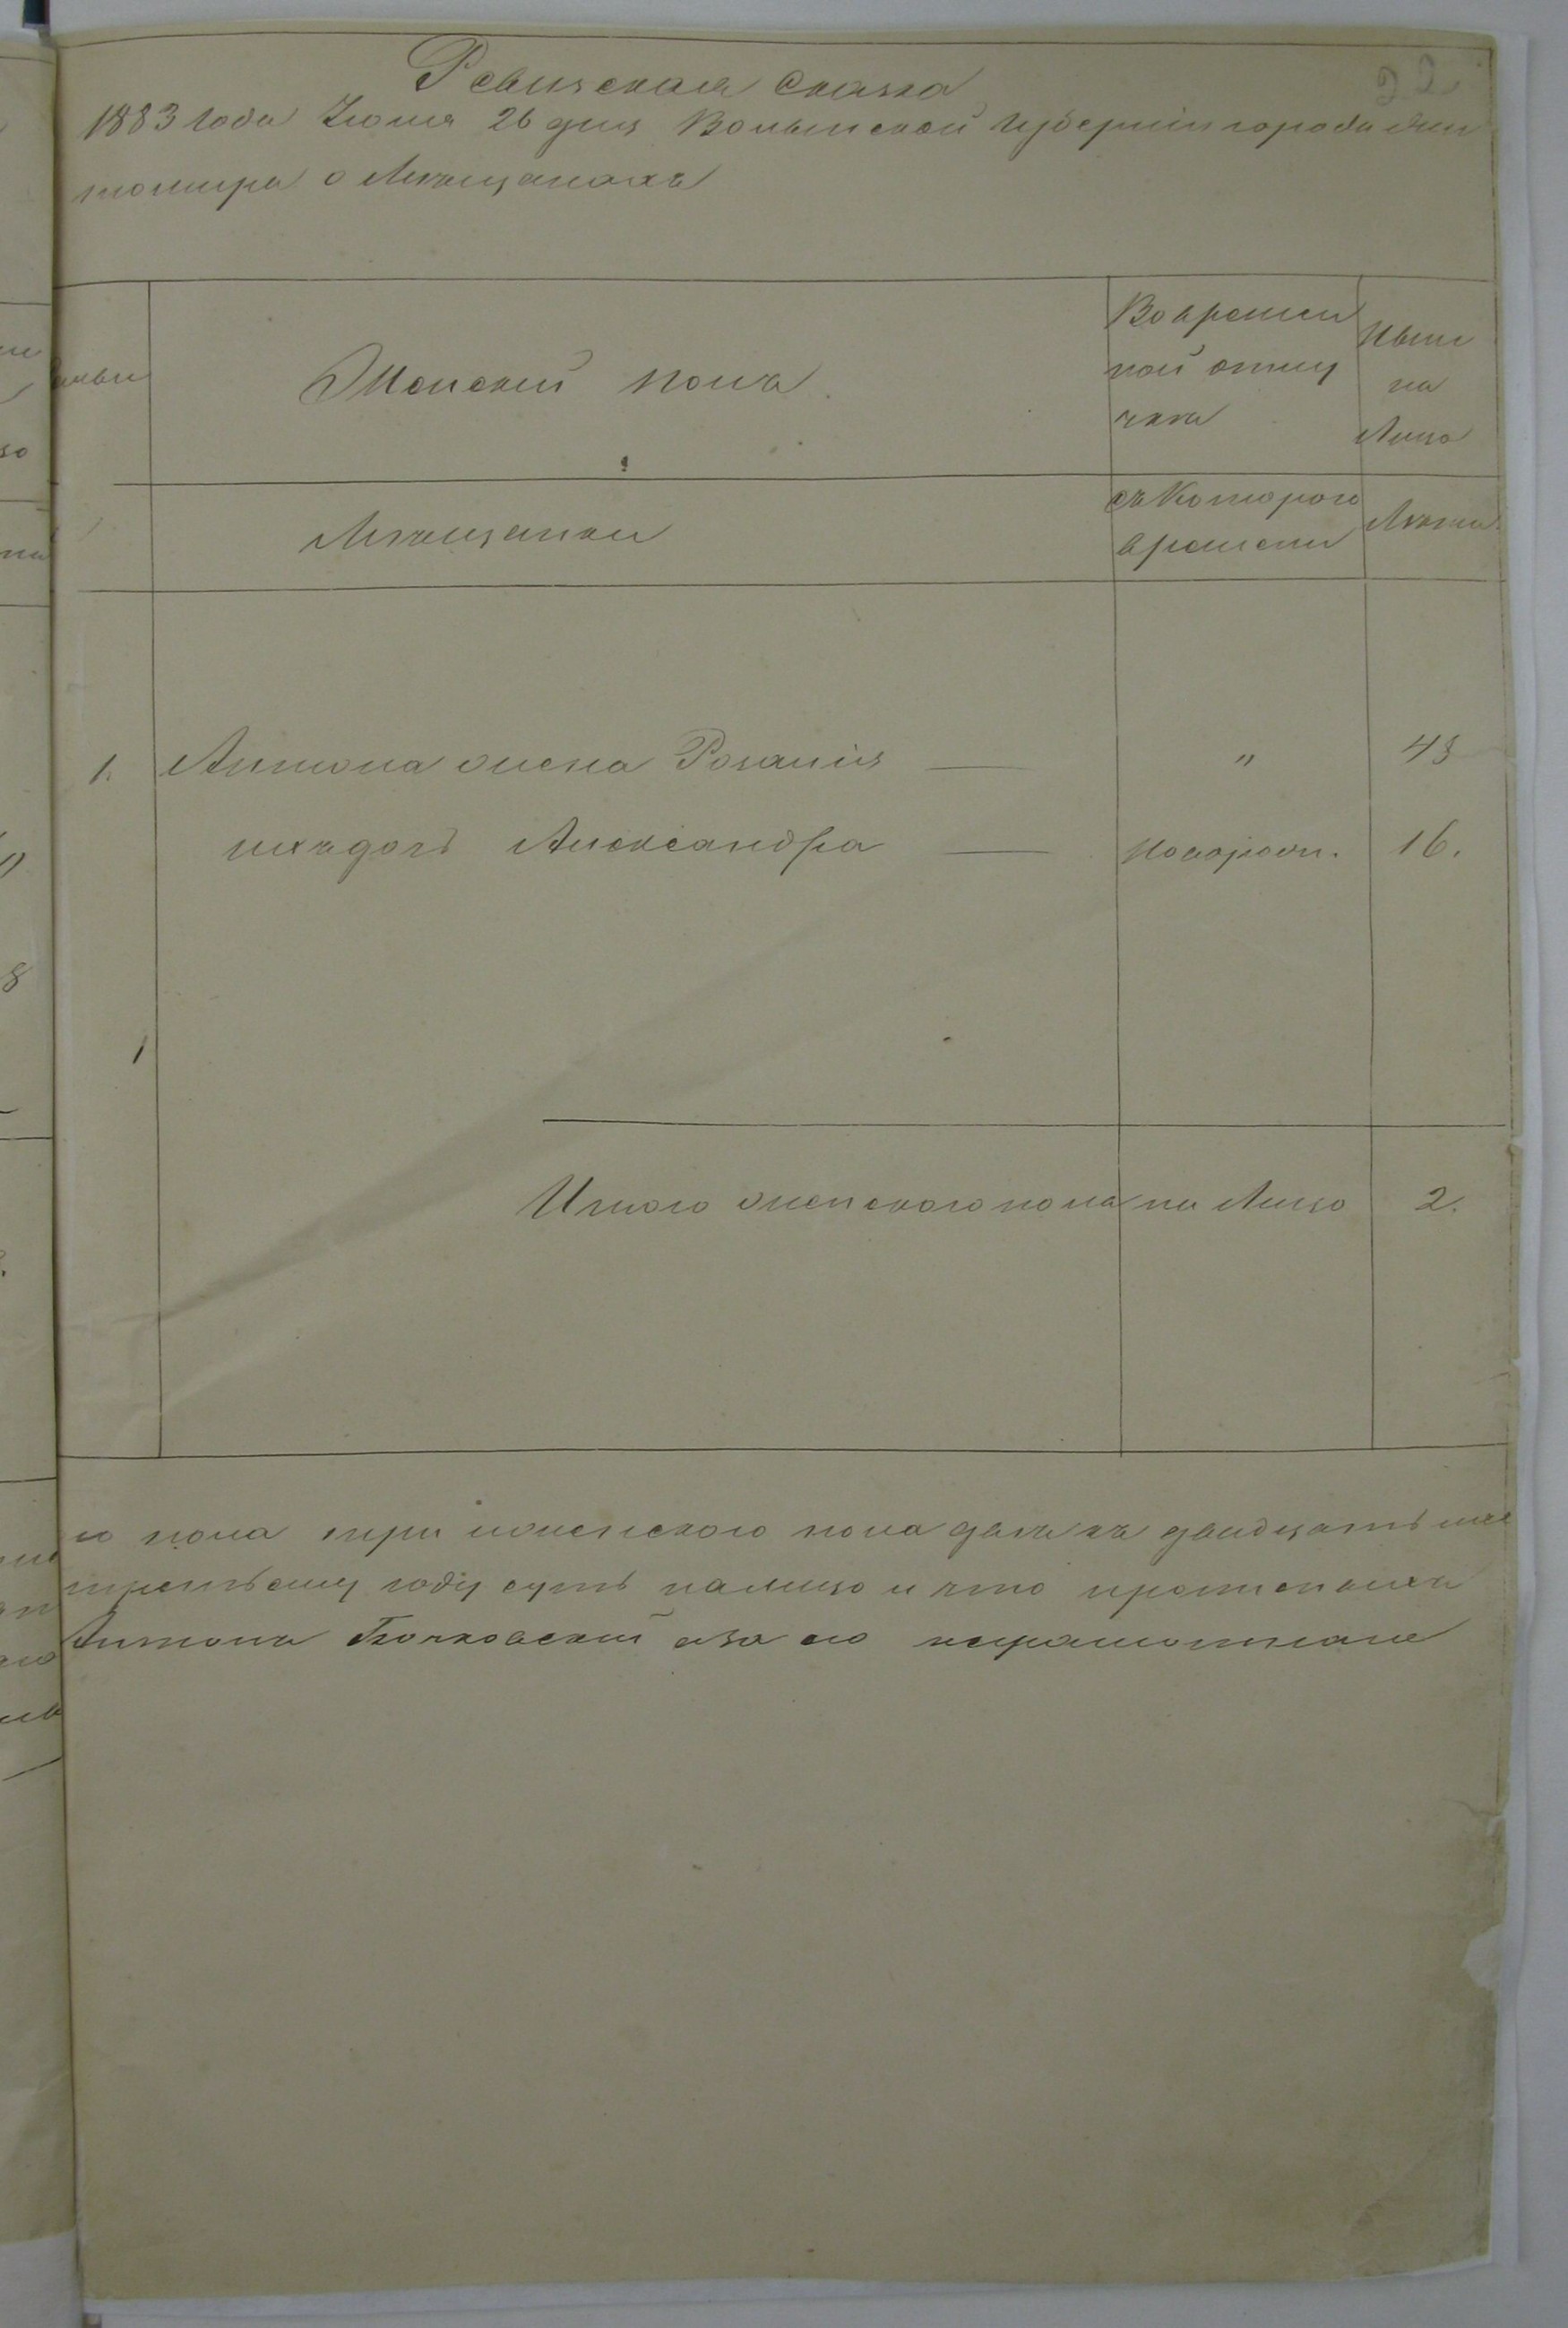 22
Ревизская Сказка
1883 года Июня 26 дня Волынской губернии города Жи
томира о Мѣщанахъ
Женский полъ
Во времен
ной отлу
чкѣ
Нынѣ
на
Лицо
Мѣщанки
съ Котораго
времени
Лѣта
1. Антона жена Розалия — " 43
ихъ дочь Александра — новорожд. 16.
1
Итого женскаго пола на Лицо 2.
го пола три и женскаго пола двѣ къ двадцать
третьему году суть на лицо и что
Антонъ Бочковский а за его неграмотнаго